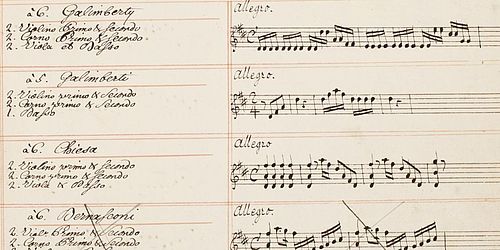 à 6. Galimberty
Allegro.
2. Violino Primo & Secondo
2. Corno Primo & Secondo
2. Viola et Basso
à 5. Galimberti
Allegro.
2. Violino primo & Secondo
2. Corno primo & Secondo
1. Basso
à 6. Chiesa
Allegro
2. Violino primo & Secondo
2. Corno primo & Secondo
2. Viola & Basso.
à 6. Bernasconi
Allegro.
2. Violi Primo & Secondo
2. Corno Primo & Secondo